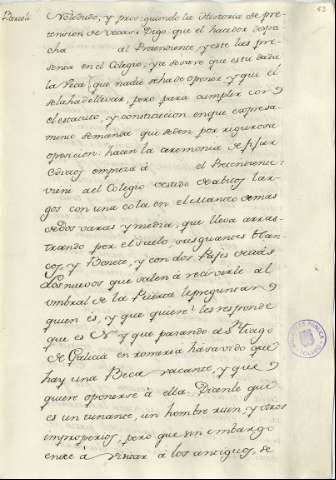 63
Baxeli
Nolódudo, y prosiguiendo la Historia de pre-
tension de vecas: Digo, que el hacedor despa-
cha al Pretendiente, y este las pre-
senta en el Colegio; ya se save que esta dada
la Veca, que nadie se ha de oponer y que él
se la ha de llevar, pero para cumplir con
el estatuto, y constitucion en que expresa-
mente se manda que se den por rigurosa
oposicion: hacen la ceremonia de fijar
Edictos empezó á el Pretendiente:
viene á el Colegio vestido de abitos lar-
gos con una cola en el estanco de mas
de dos varas y media, que lleva arras-
trando por el suelo, sus guantes blan-
cos, y Bonete, y con dos Pajes detrás
Los nuevos que salen á recivirle al
umbral de la Puerta le preguntan
quien es, y que quiere? les responde
que es N. y que parando á Stiago
de Galicia en romeria há savido que
hay una Beca vacante, y que
quiere oponerse á ella. Dicenle que
es un tunante, un hombre ruin, y otros
improperios, pero que sin embargo
entre á visitar á los antiguos, se